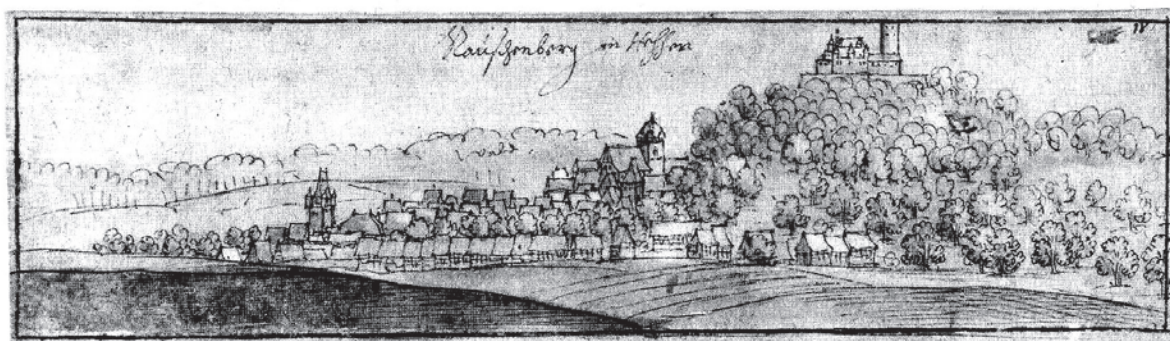 Rauschenberg in Hessen
wald